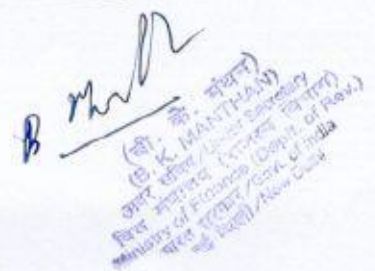 (बी. के. मंथन)
(B. K. MANTHAN)
अवर सचिव/Under Secretary
वित्त मंत्रालय (राजस्व विभाग)
Ministry of Finance (Deptt. of Rev.)
भारत सरकार/Govt. of India
नई दिल्ली/New Delhi